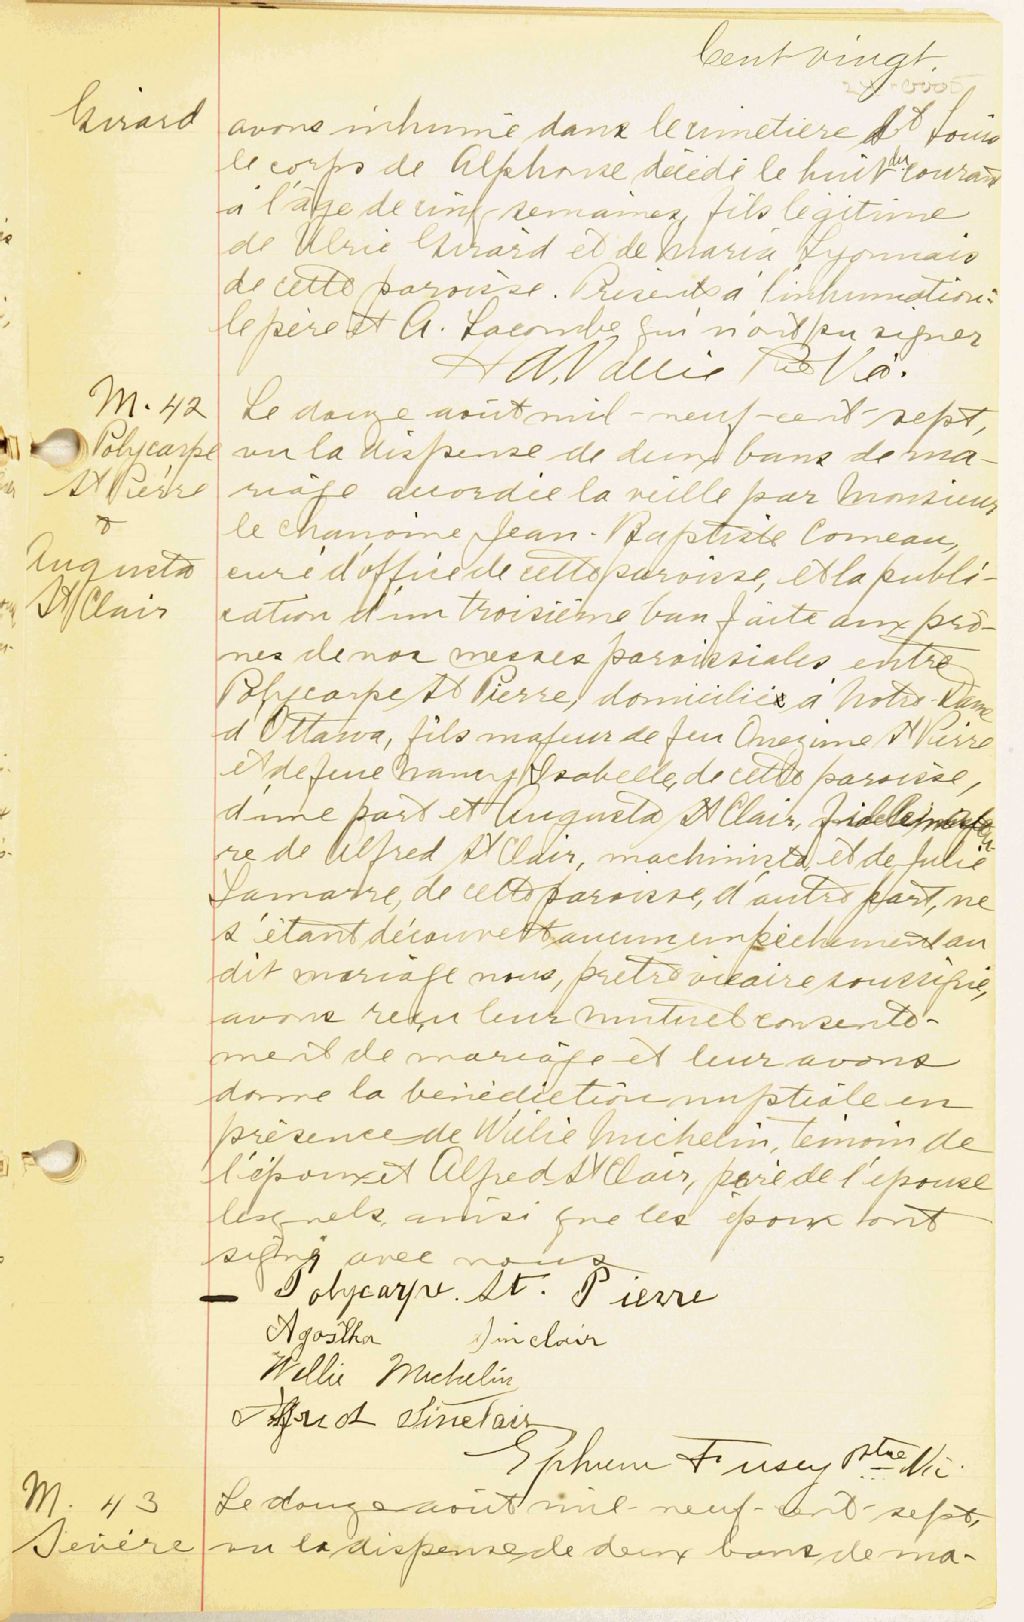 Cent vingt.
Girard
avons inhumé dans le cimetière St Louis
le corps de Alphonse décédé le huit du courant
à l'âge de cinq semaines, fils légitime
de Ulric Girard et de Maria Lyonnais
de cette paroisse. Présents à l'inhumation:
le père et A. Lacombe qui n'ont pu signer
Ptre Vic.
M. 42
Polycarpe
St Pierre
&
Augusta
St Clair
Le douze août mil-neuf-cent-sept,
vu la dispense de deux bans de ma-
riage accordée la veille par Monsieur
le chanoine Jean-Baptiste Comeau,
curé d'office de cette paroisse, et la publi-
cation d'un troisième ban faite aux prô-
nes de nos messes paroissiales entre
Polycarpe St Pierre, domicilié à Notre-Dame
d'Ottawa, fils majeur de feu Onezime St Pierre
et de feue Nancy Isabelle, de cette paroisse,
d'une part et Augusta St Clair,
re de Alfred St Clair, machiniste, et de Julie
Lamarre, de cette paroisse, d'autre part, ne
s'étant découvert aucun empêchement au
dit mariage nous, prêtre vicaire soussigné,
avons reçu leur mutuel consente-
ment de mariage et leur avons
donné la bénédiction nuptiale en
présence de Willie Michelin, témoin de
l'époux et Alfred St Clair, père de l'épouse
lesquels, ainsi que les époux ont
signé avec nous
Polycarpe. St. Pierre
Agostha Sinclair
Willie Michelin
Alfred Sinclair
Ephrem Fusey Ptre Vic.
M. 43
Sévère
Le douze août mil-neuf-cent-sept,
vu la dispense de deux bans de ma-